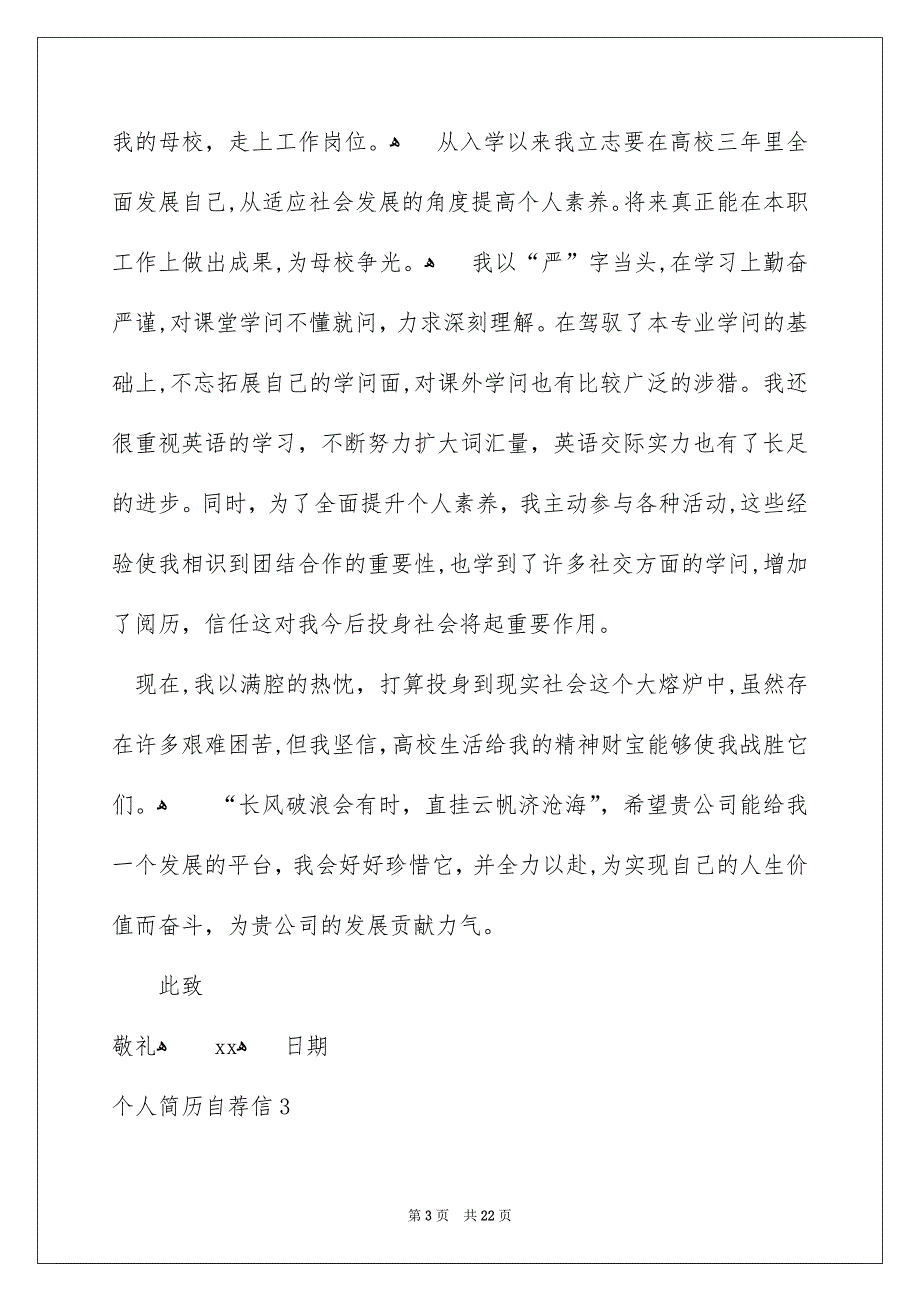 我的母校，走上工作岗位。ﻫ 从入学以来我立志要在高校三年里全
面发展自己,从适应社会发展的角度提高个人素养。将来真正能在本职
工作上做出成果,为母校争光。ﻫ 我以“严”字当头,在学习上勤奋
严谨,对课堂学问不懂就问，力求深刻理解。在驾驭了本专业学问的基
础上,不忘拓展自己的学问面,对课外学问也有比较广泛的涉猎。我还
很重视英语的学习，不断努力扩大词汇量，英语交际实力也有了长足
的进步。同时，为了全面提升个人素养，我主动参与各种活动,这些经
验使我相识到团结合作的重要性,也学到了许多社交方面的学问,增加
了阅历，信任这对我今后投身社会将起重要作用。
现在,我以满腔的热忱，打算投身到现实社会这个大熔炉中,虽然存
在许多艰难困苦,但我坚信,高校生活给我的精神财宝能够使我战胜它
们。ﻫ “长风破浪会有时，直挂云帆济沧海”，希望贵公司能给我
一个发展的平台，我会好好珍惜它，并全力以赴,为实现自己的人生价
值而奋斗，为贵公司的发展贡献力气。
此致
敬礼ﻫ xxﻫ 日期
个人简历自荐信3
第 3 页 共 22 页